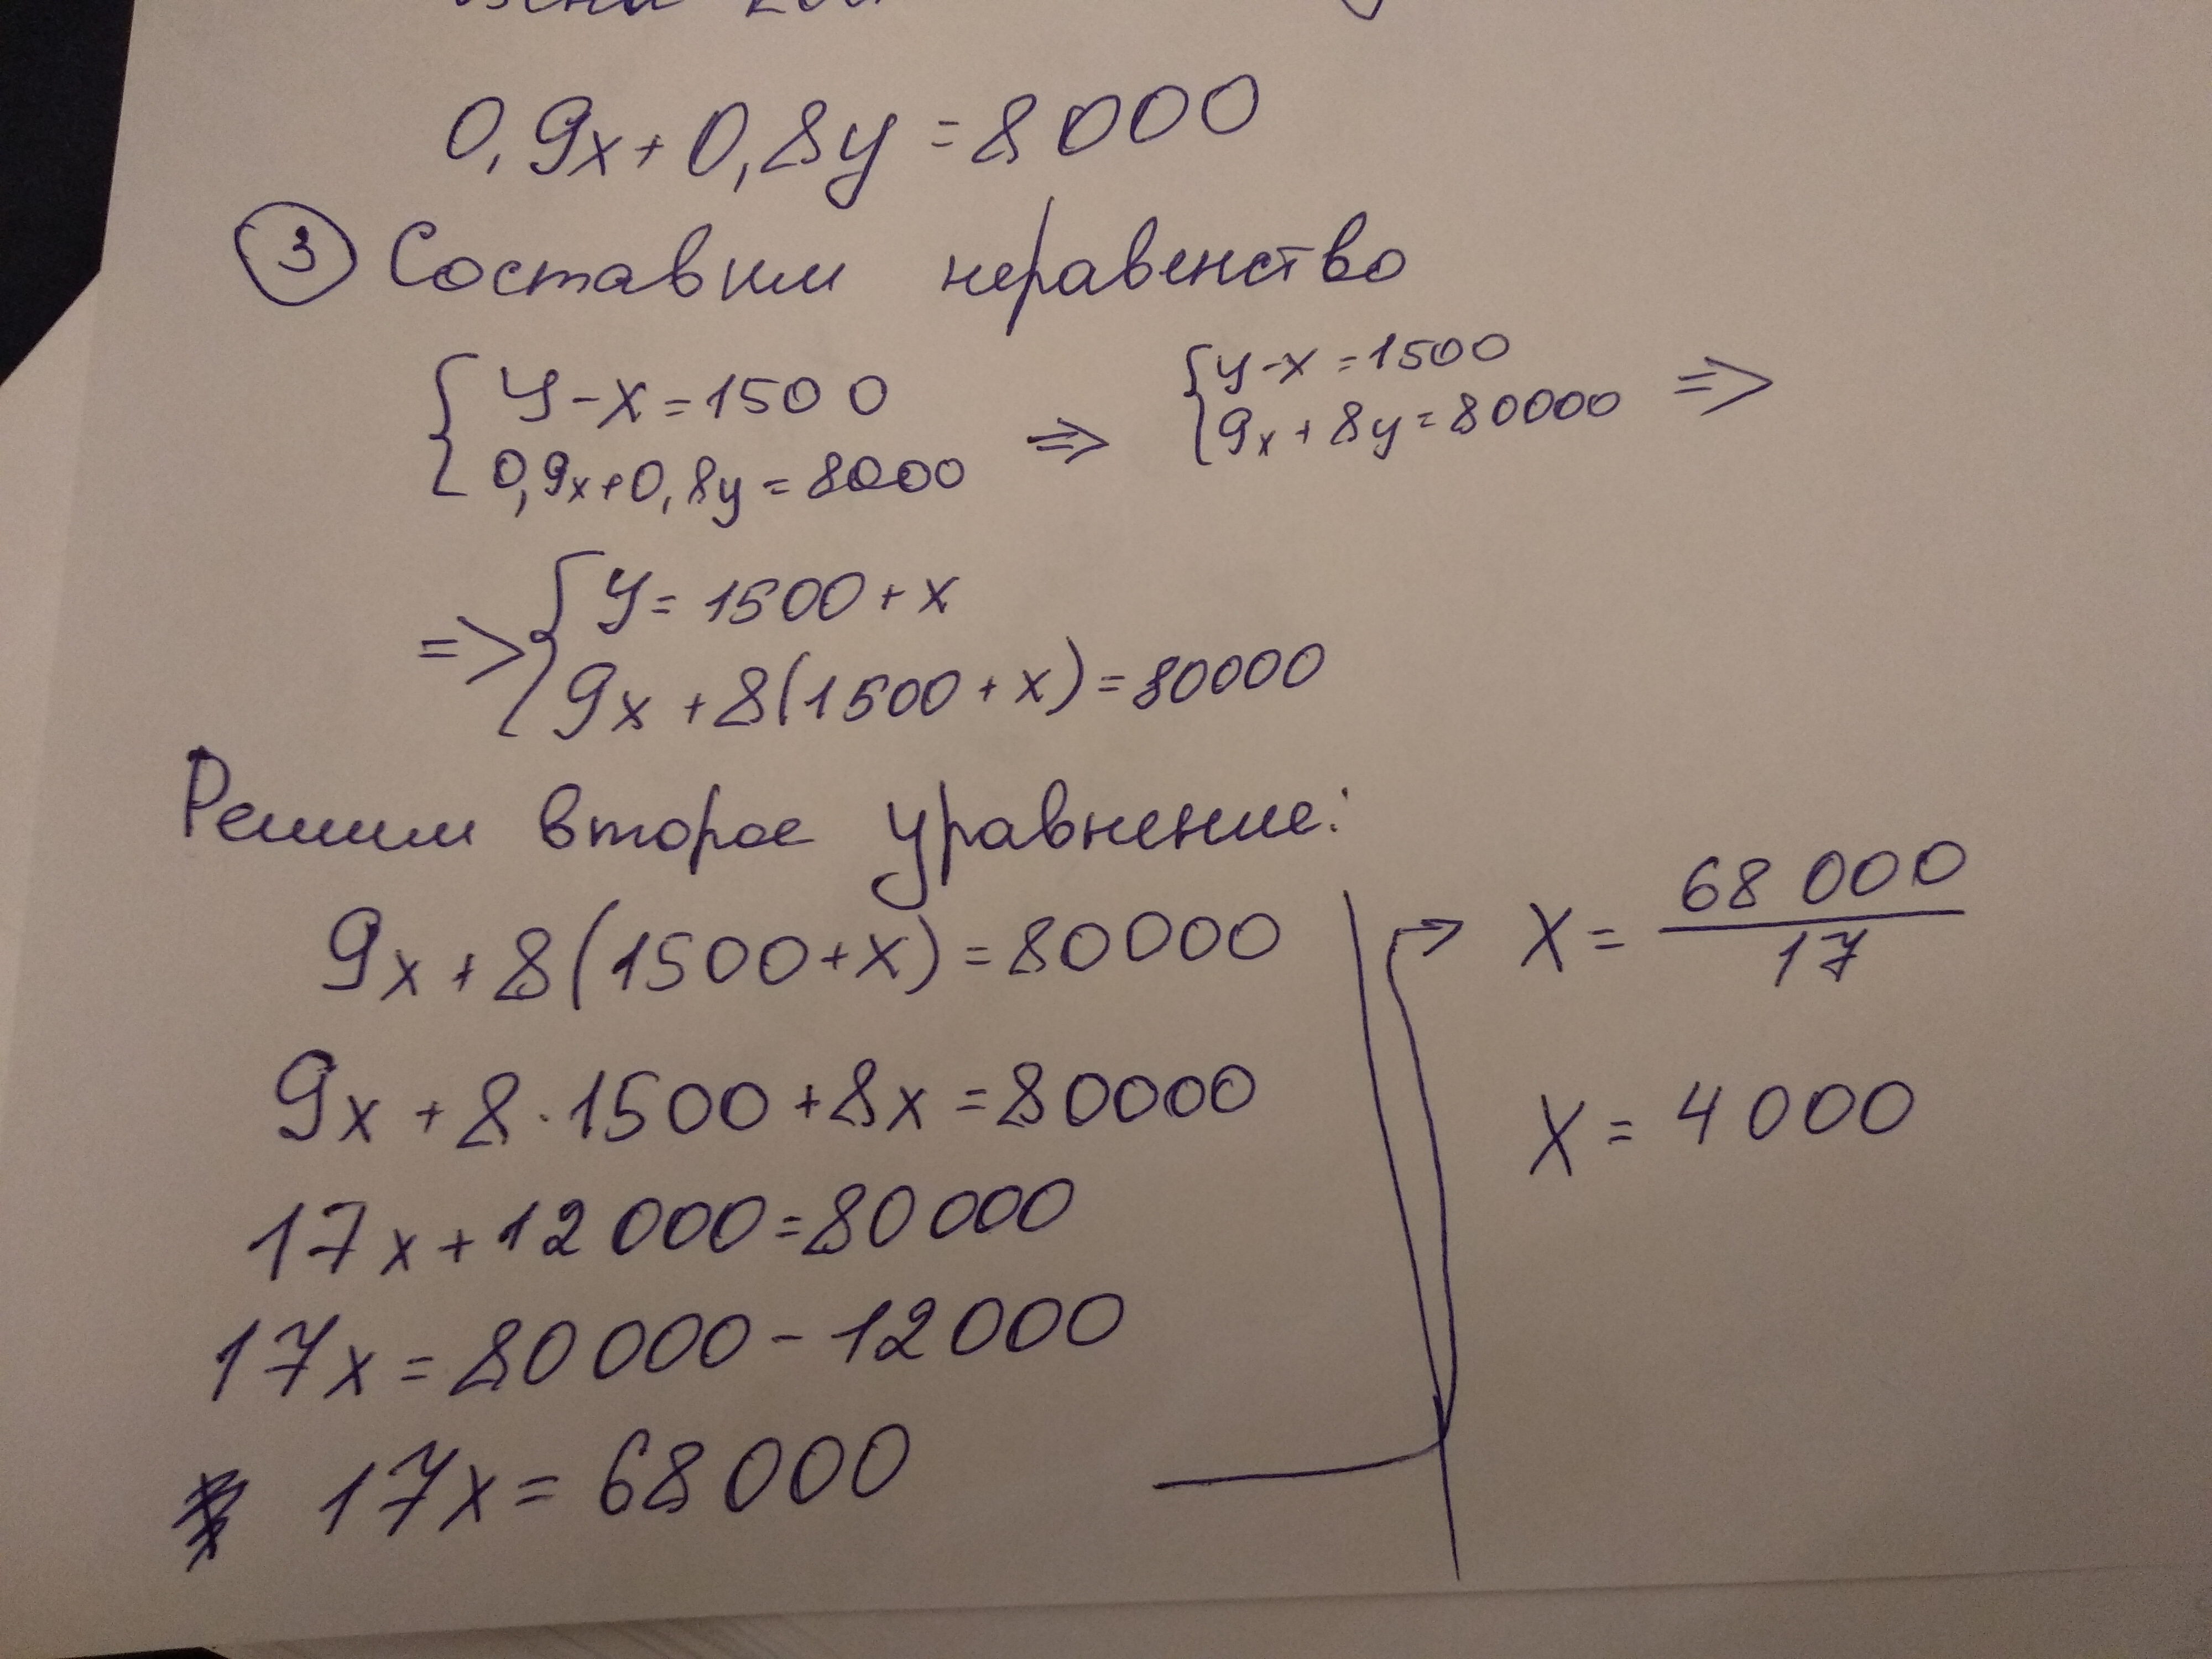 0,9x+0,8y=8000
3 Составим неравенство
y-x=1500
0,9x+0,8y=8000
=>
y-x=1500
9x+8y=80000
=>
=>
y=1500+x
9x+8(1500+x)=80000
Решим второе уравнение:
9x+8(1500+x)=80000
9x+8·1500+8x=80000
17x+12000=80000
17x=80000-12000
17x=68000
x=68000/17
x=4000